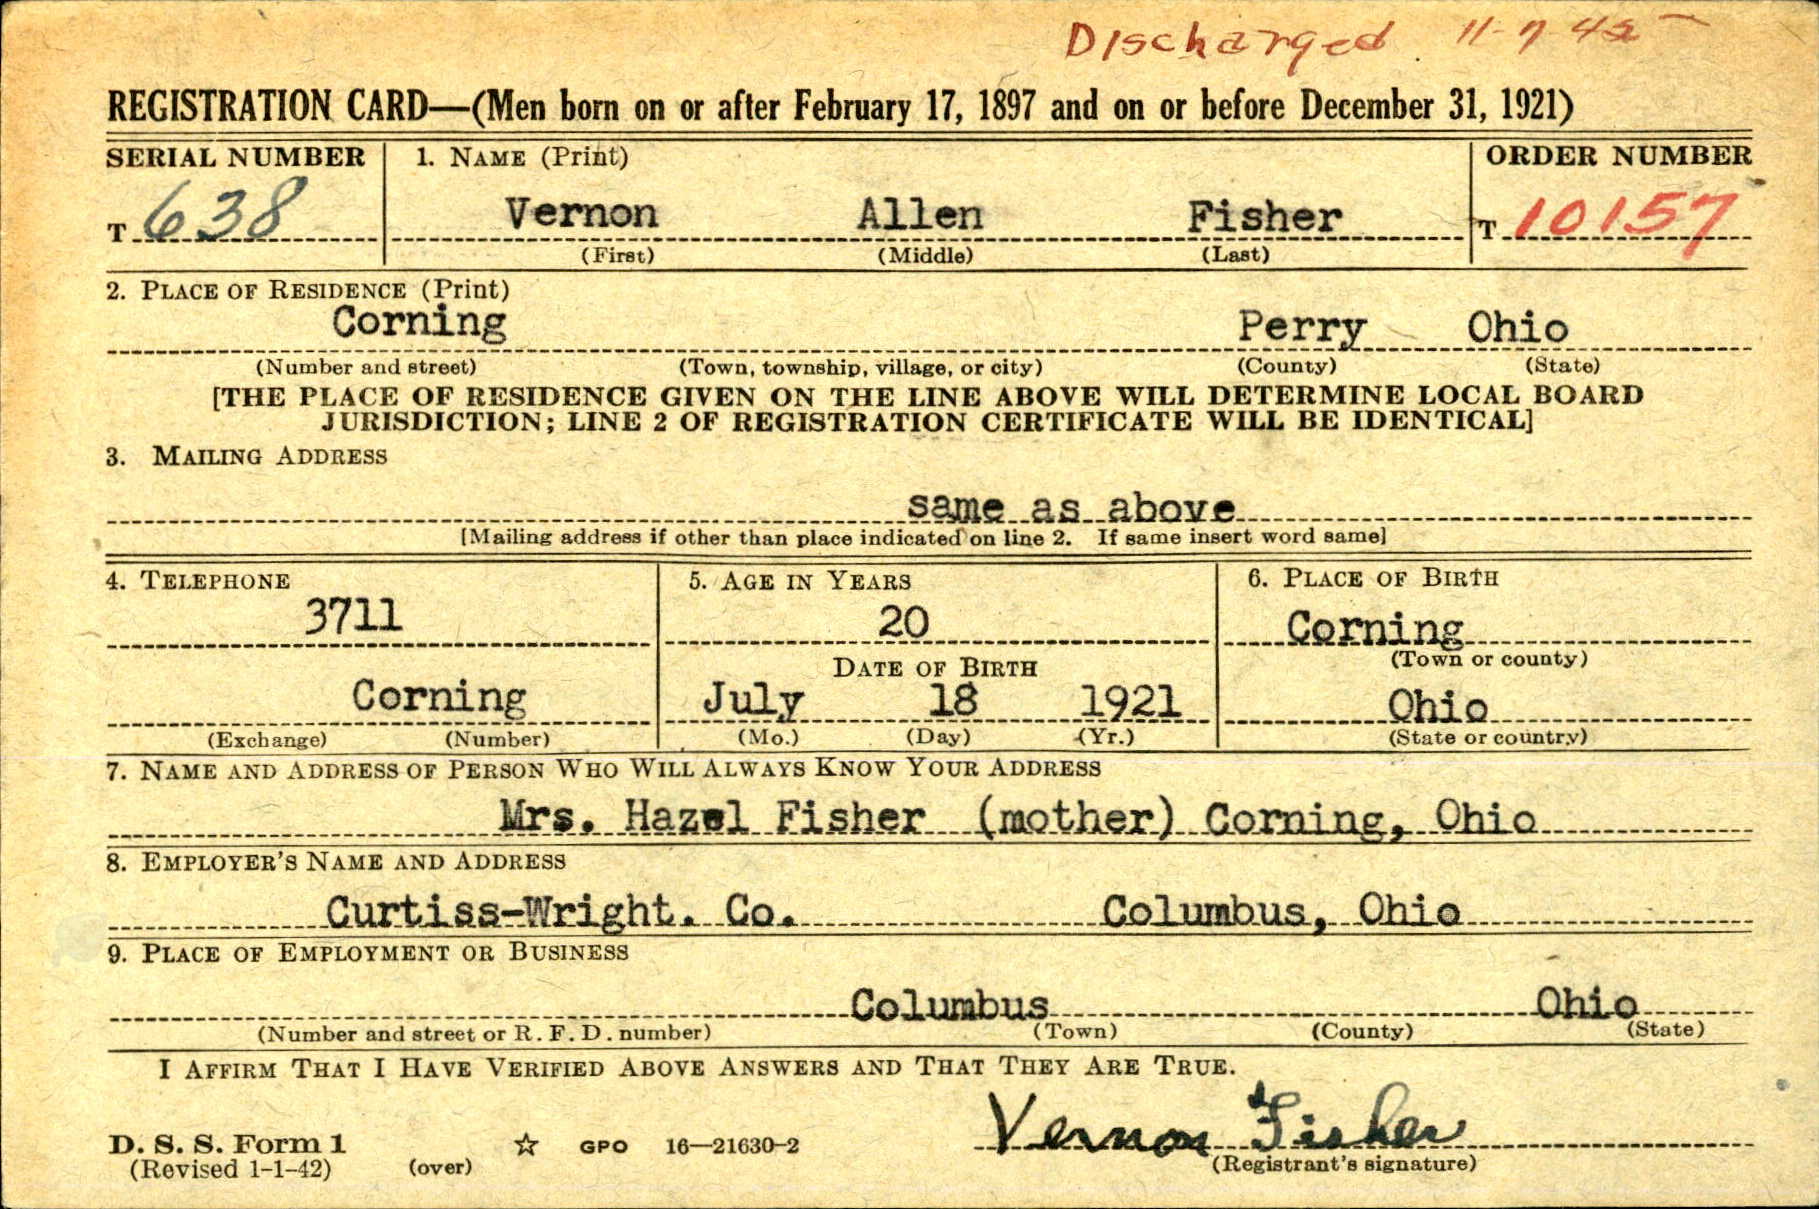 Discharged 11-7-45
REGISTRATION CARD—(Men born on or after February 17, 1897 and on or before December 31, 1921)
SERIAL NUMBER 1. NAME (Print) ORDER NUMBER
T 638 Vernon Allen Fisher T 10157
(First) (Middle) (Last)
2. PLACE OF RESIDENCE (Print)
Corning Perry Ohio
(Number and street) (Town, township, village, or city) (County) (State)
[THE PLACE OF RESIDENCE GIVEN ON THE LINE ABOVE WILL DETERMINE LOCAL BOARD
JURISDICTION; LINE 2 OF REGISTRATION CERTIFICATE WILL BE IDENTICAL]
3. MAILING ADDRESS
same as above
[Mailing address if other than place indicated on line 2. If same insert word same]
4. TELEPHONE 5. AGE IN YEARS 6. PLACE OF BIRTH
3711 20 Corning
DATE OF BIRTH (Town or county)
Corning July 18 1921 Ohio
(Exchange) (Number) (Mo.) (Day) (Yr.) (State or country)
7. NAME AND ADDRESS OF PERSON WHO WILL ALWAYS KNOW YOUR ADDRESS
Mrs. Hazel Fisher (mother) Corning, Ohio
8. EMPLOYER'S NAME AND ADDRESS
Curtiss-Wright. Co. Columbus, Ohio
9. PLACE OF EMPLOYMENT OR BUSINESS
Columbus Ohio
(Number and street or R. F. D. number) (Town) (County) (State)
I AFFIRM THAT I HAVE VERIFIED ABOVE ANSWERS AND THAT THEY ARE TRUE.
Vernon Fisher
D. S. S. Form 1 ☆ GPO 16—21630-2
(Revised 1-1-42) (over) (Registrant's signature)